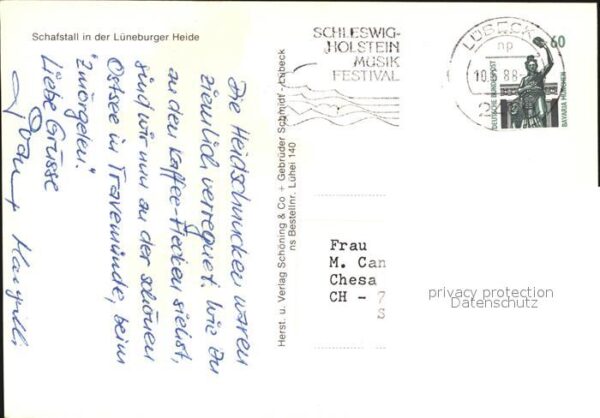 Schafstall in der Lüneburger Heide
Die Heidschnucken waren
ziemlich verregnet. Wie Du
an den Kaffee-Flecken siehst,
sind wir nun an der schönen
Ostsee in Travemünde, beim
"zmörgelen".
Liebe Grüsse
Herst. u. Verlag Schöning & Co + Gebrüder Schmidt - Lübeck
ns Bestellnr. Lühei 140
SCHLESWIG-
HOLSTEIN
MUSIK
FESTIVAL
LÜBECK
np
88
2
60
DEUTSCHE BUNDESPOST
BAVARIA MÜNCHEN
Frau
M. Can
Chesa
CH - 7
S
privacy protection
Datenschutz